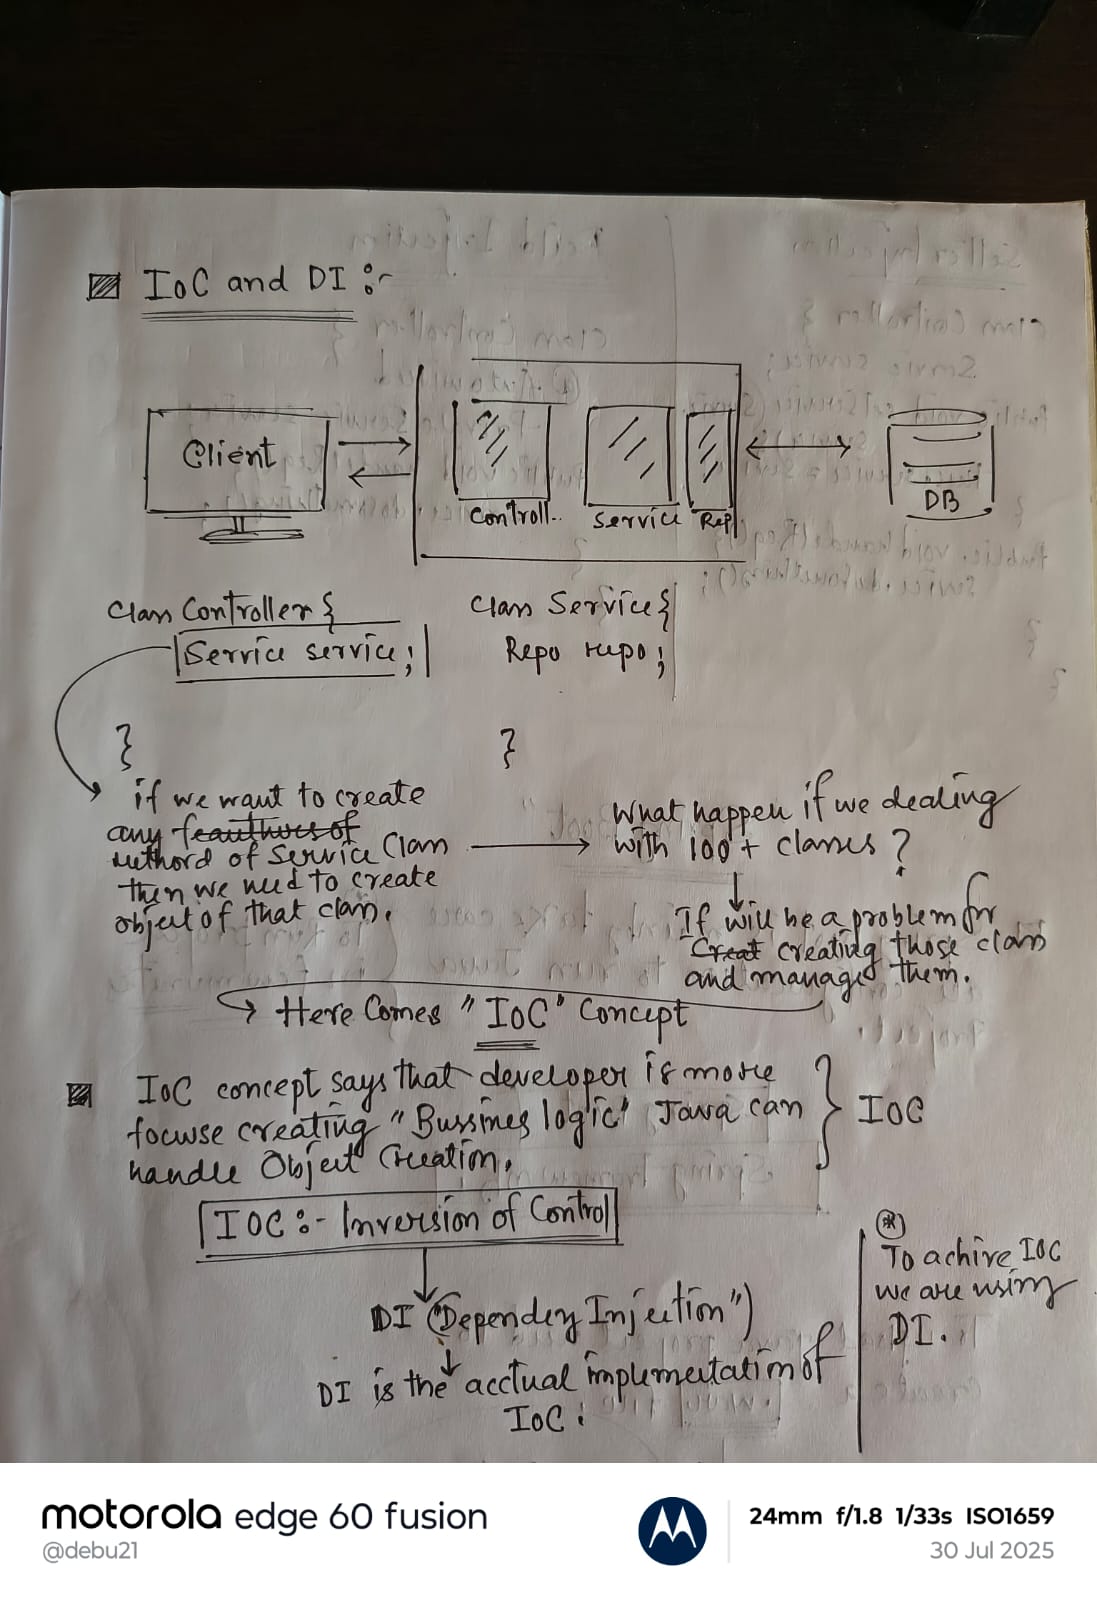 IoC and DI :-
Client
Controll..
Service
Rep
DB
Class Controller {
Service service;
}
Class Service {
Repo repo;
}
if we want to create
any feauthures of
methord of Service Class
then we need to create
object of that class.
What happen if we dealing
with 100+ classes ?
If will be a problem for
Creat creating those class
and manage them.
Here Comes "IoC" Concept
IoC concept says that developer is more
focuse creating "Bussines logic" Java can
handle Object Creation.
IOC
IOC :- Inversion of Control
DI ("Dependey Injection")
DI is the acctual implementation of
IoC :
To achive IOC
we are using
DI.
motorola edge 60 fusion
@debu21
24mm f/1.8 1/33s ISO1659
30 Jul 2025